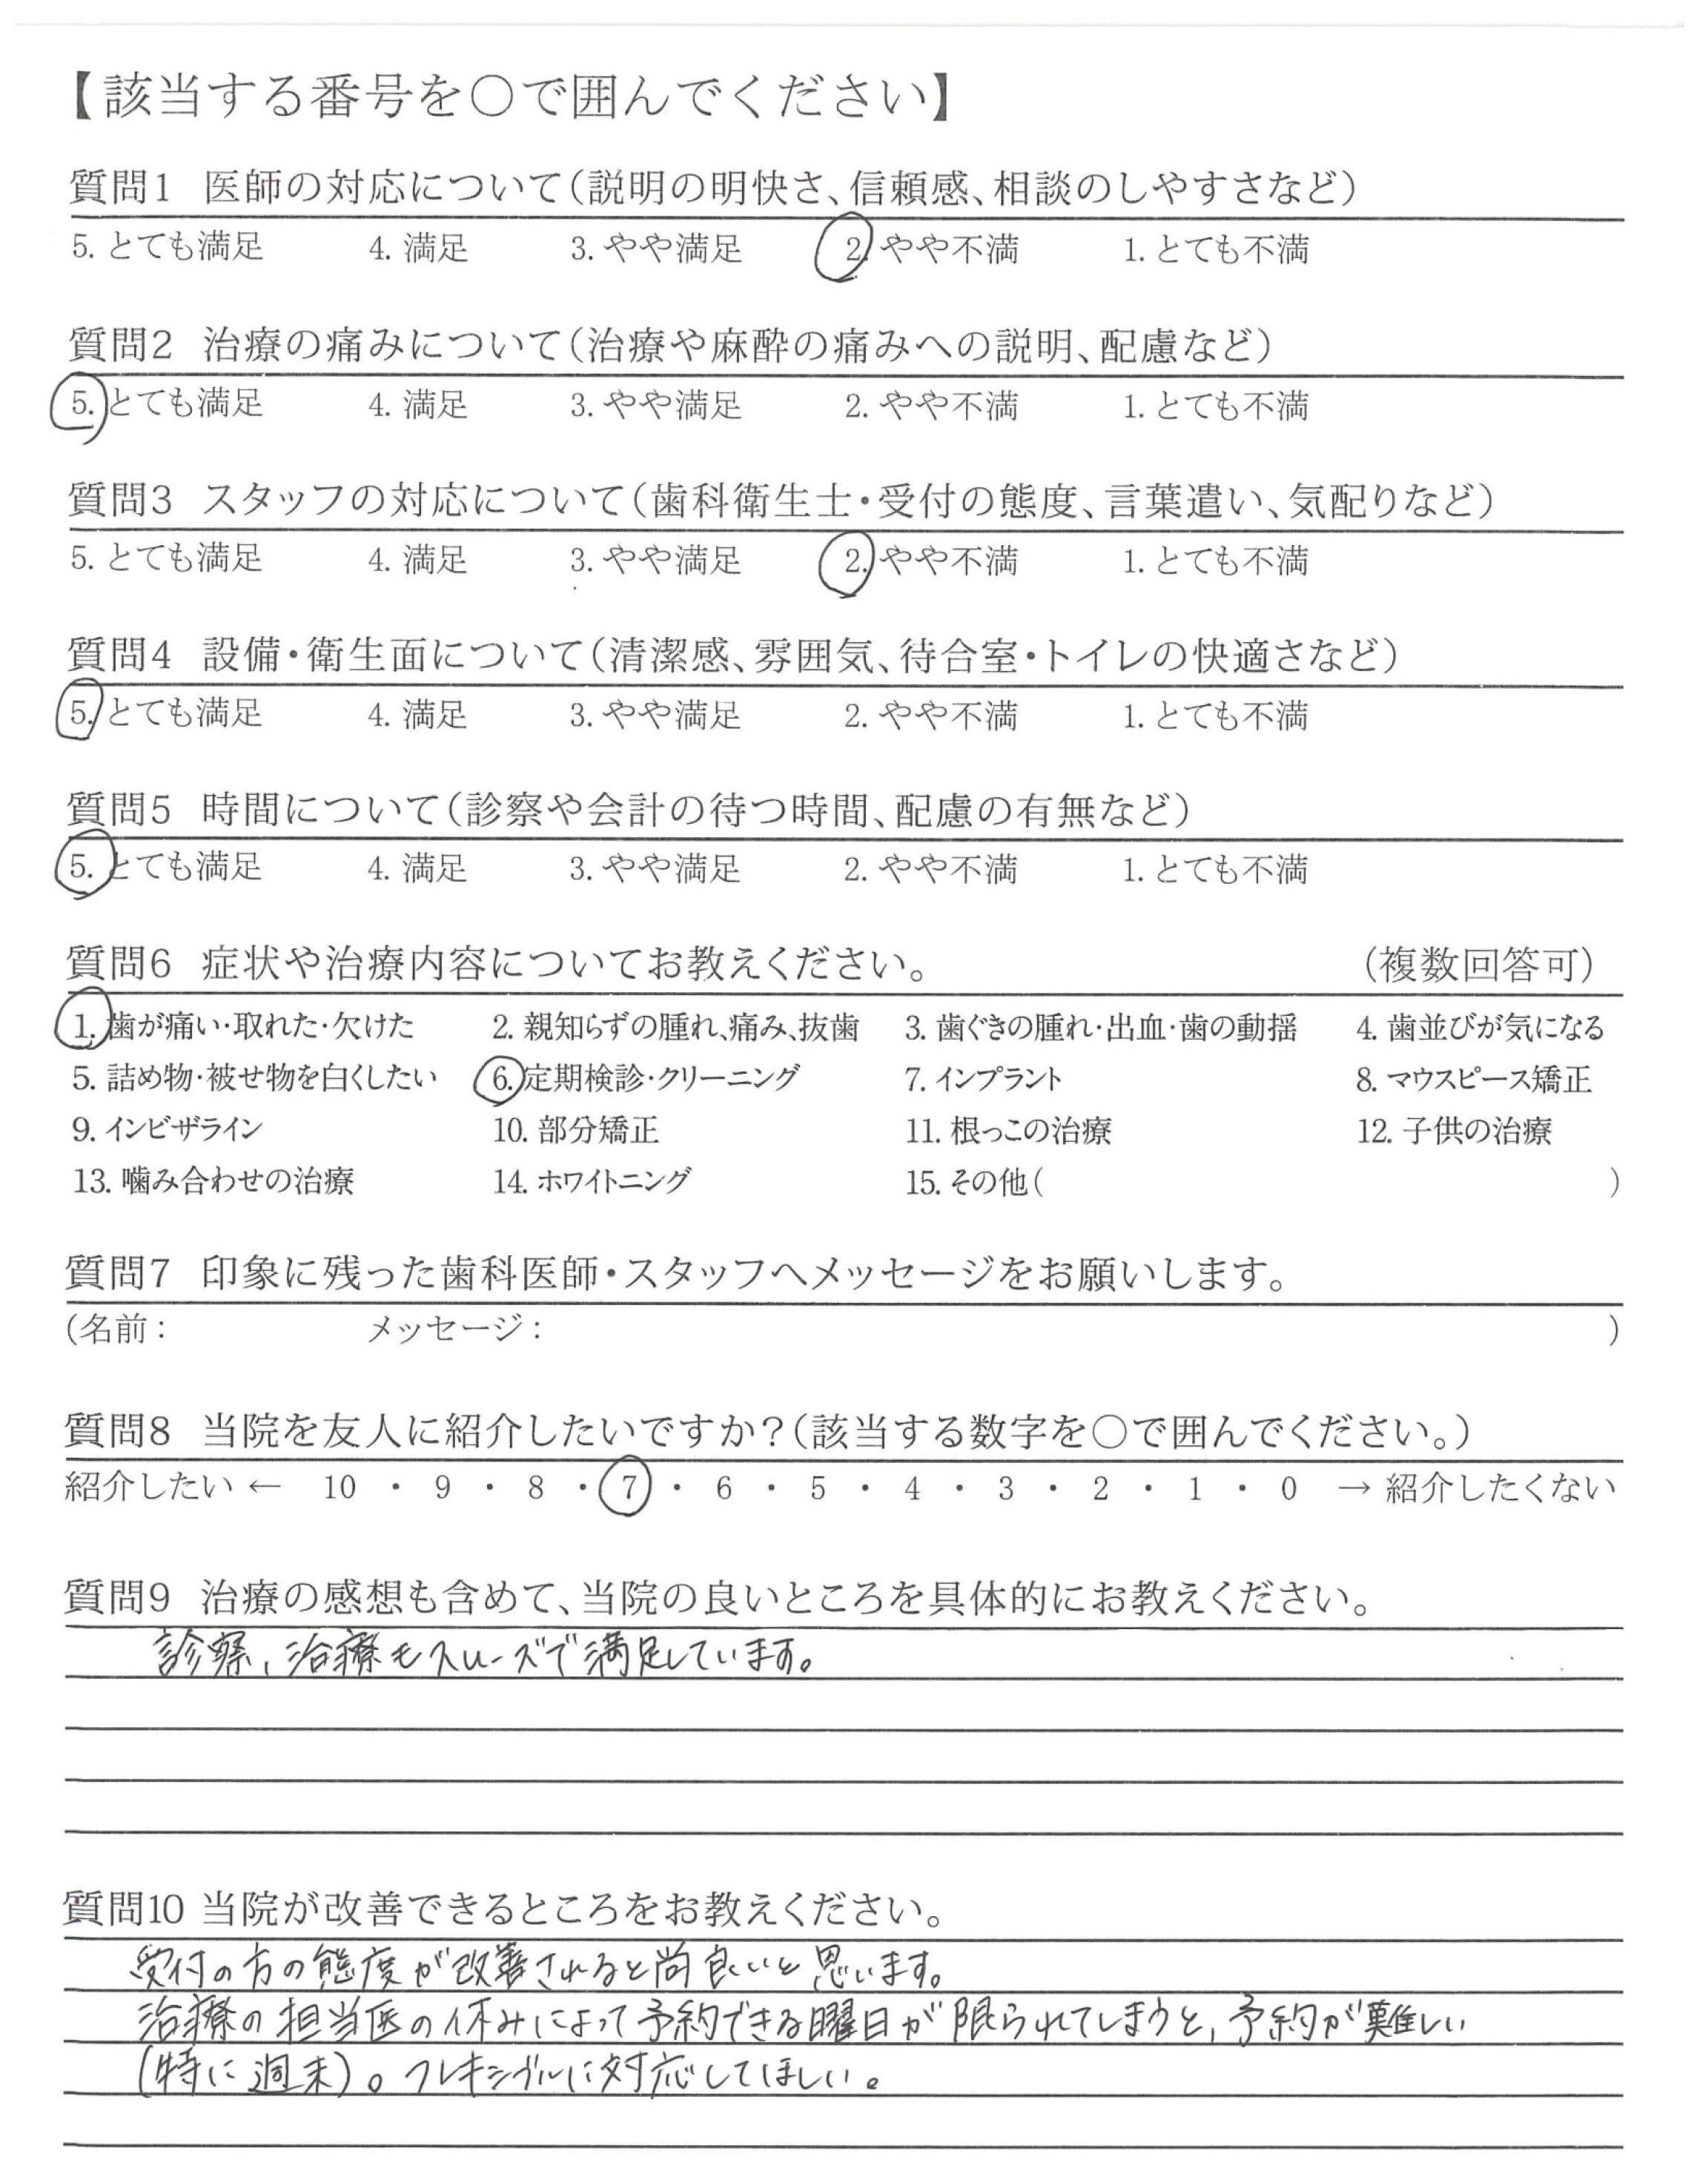 【該当する番号を○で囲んでください】
質問1 医師の対応について(説明の明快さ、信頼感、相談のしやすさなど)
5. とても満足 4. 満足 3. やや満足 2. やや不満 1. とても不満
質問2 治療の痛みについて(治療や麻酔の痛みへの説明、配慮など)
5. とても満足 4. 満足 3. やや満足 2. やや不満 1. とても不満
質問3 スタッフの対応について(歯科衛生士・受付の態度、言葉遣い、気配りなど)
5. とても満足 4. 満足 3. やや満足 2. やや不満 1. とても不満
質問4 設備・衛生面について(清潔感、雰囲気、待合室・トイレの快適さなど)
5. とても満足 4. 満足 3. やや満足 2. やや不満 1. とても不満
質問5 時間について(診察や会計の待つ時間、配慮の有無など)
5. とても満足 4. 満足 3. やや満足 2. やや不満 1. とても不満
質問6 症状や治療内容についてお教えください。 (複数回答可)
1. 歯が痛い・取れた・欠けた 2. 親知らずの腫れ、痛み、抜歯 3. 歯ぐきの腫れ・出血・歯の動揺 4. 歯並びが気になる
5. 詰め物・被せ物を白くしたい 6. 定期検診・クリーニング 7. インプラント 8. マウスピース矯正
9. インビザライン 10. 部分矯正 11. 根っこの治療 12. 子供の治療
13. 噛み合わせの治療 14. ホワイトニング 15. その他( )
質問7 印象に残った歯科医師・スタッフへメッセージをお願いします。
(名前: メッセージ: )
質問8 当院を友人に紹介したいですか?(該当する数字を○で囲んでください。)
紹介したい ← 10 ・ 9 ・ 8 ・ 7 ・ 6 ・ 5 ・ 4 ・ 3 ・ 2 ・ 1 ・ 0 → 紹介したくない
質問9 治療の感想も含めて、当院の良いところを具体的にお教えください。
診察、治療もスムーズで満足しています。
質問10 当院が改善できるところをお教えください。
受付の方の態度が改善されると尚良いと思います。
治療の担当医の休みによって予約できる曜日が限られてしまうと、予約が難しい
(特に週末)。フレキシブルに対応してほしい。